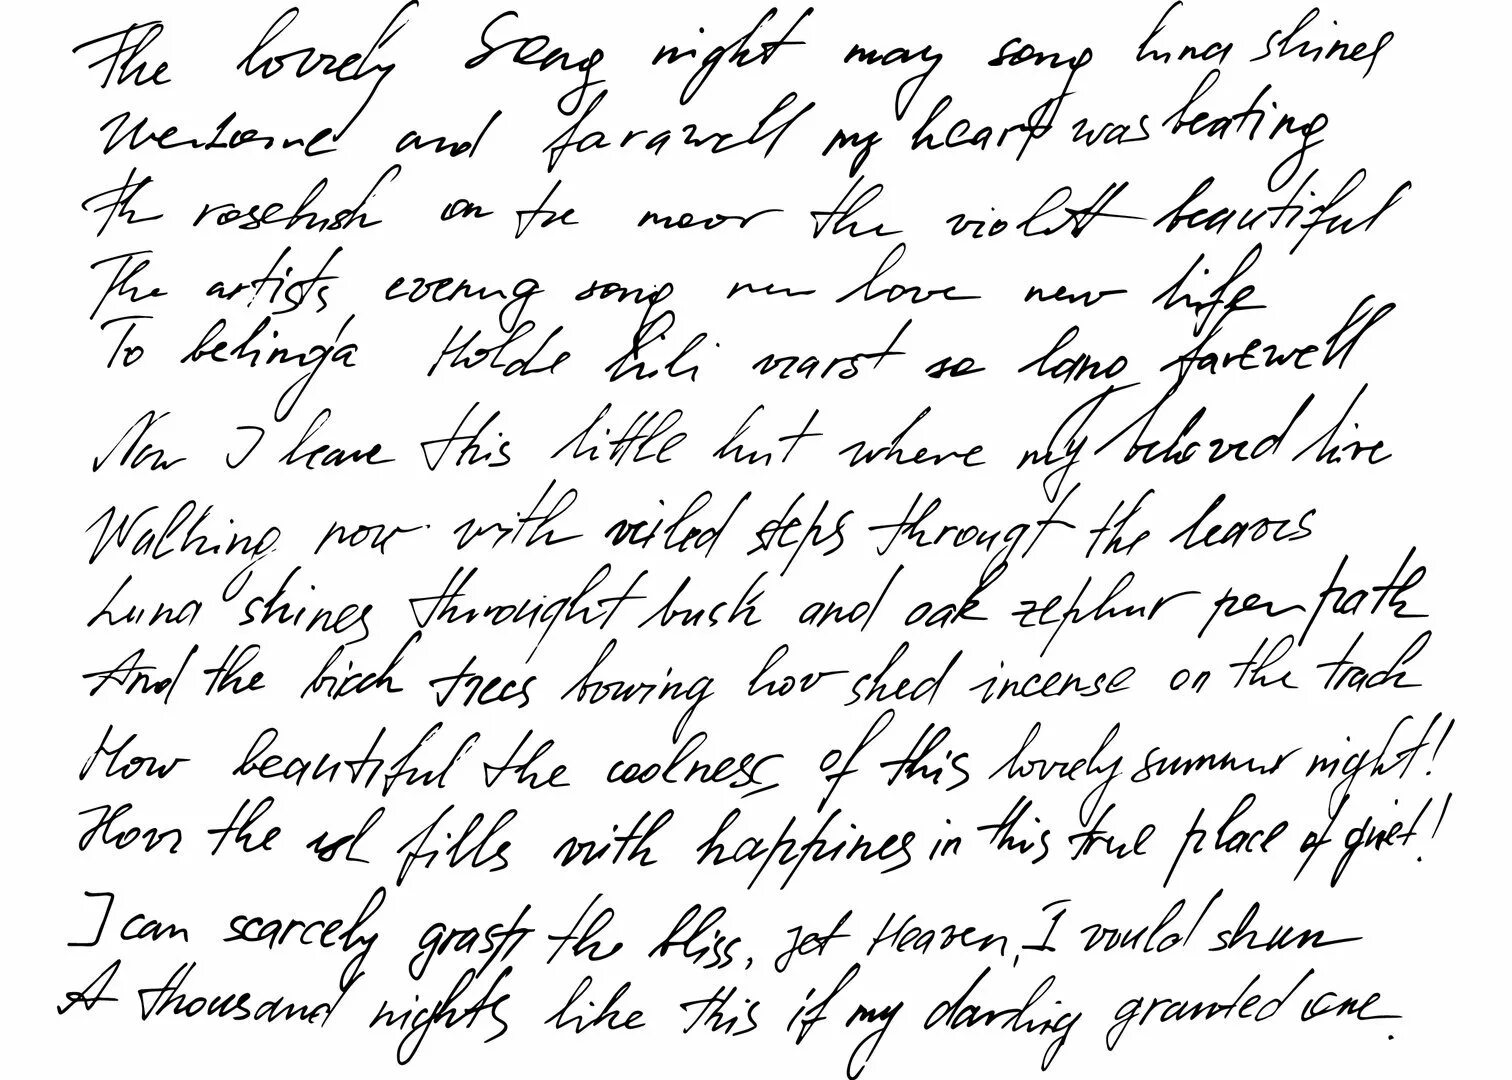 The lovely Song night may song luna shines
Welcome and farawell my heart was beating
Th rosebush on the moor the violett beautiful
The artists evening song new love new life
To belinga Holde Lili warst so lang farewell
Now I leave this little hut where my beloved live
Walking now with veiled steps througt the leaves
Luna shines throught busk and oak zephur per path
And the birch trees bowing how shed incense on the track
How beautiful the coolness of this lovely summer night!
How the soul fills with happines in this true place of quiet!
I can scarcely grasp the bliss, jet Heaven, I would shun
A thousand nights like this if my darling granted one.